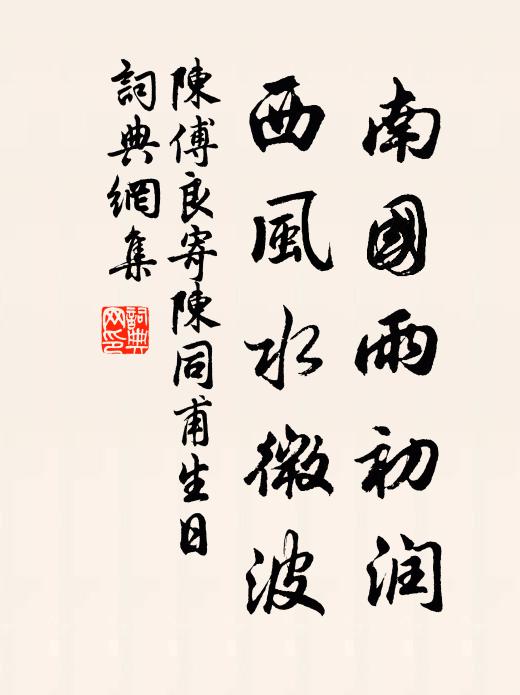 南國雨初润
西風水微波
陳傅良寄陳同甫生日
詞典網集
詞典网印